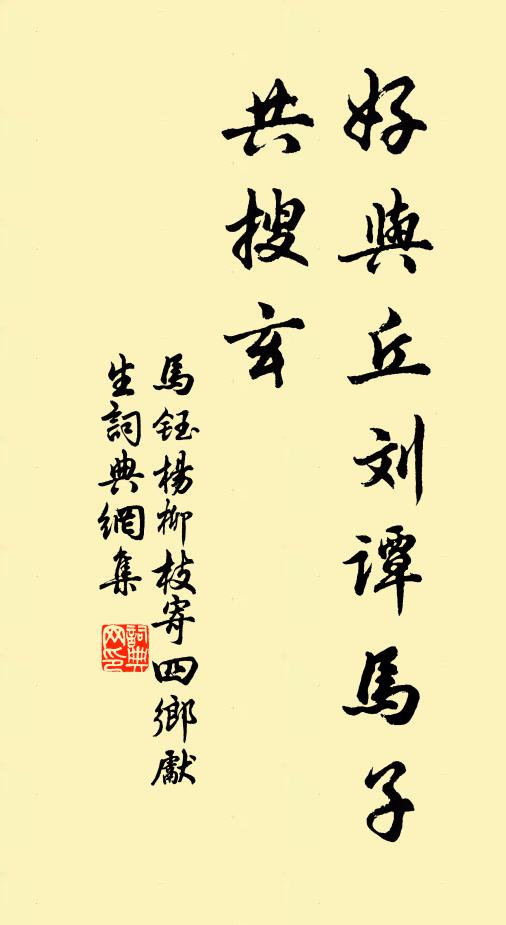 好與丘刘谭馬子
共搜玄
馬鈺楊柳枝寄四鄉獻
生詞典網集
詞典
网印